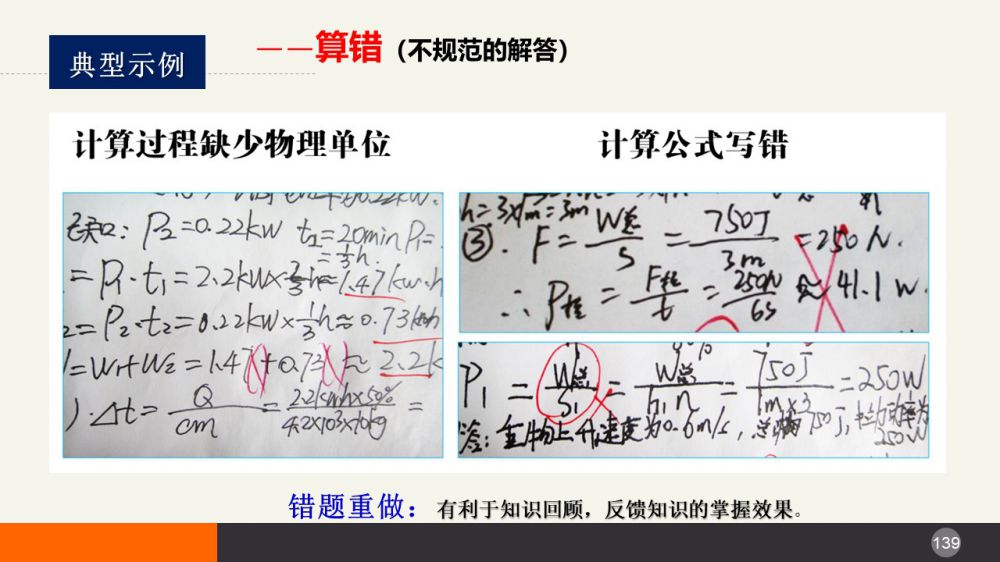 典型示例
——算错（不规范的解答）
计算过程缺少物理单位
计算公式写错
P₂=0.22kW t₂=20min P₁=
=⅓h.
=P₁·t₁=2.2kW×⅔h≈1.47kW·h
₂=P₂·t₂=0.22kW×⅓h≈0.73kWh
W₁+W₂=1.47+0.73≈2.2k
)·Δt=Q/cm=2.2kWh×50%/4.2×10³×70kg=
h=3×1m=3m
③. F=W总/S=750J/3m=250N.
∴P拉=F拉/t=250N/6s≈41.1W.
P₁=W总/S₁=W总/h₁n=750J/1m×3=250W
答:重物上升速度为0.6m/s,总功 750J,拉力功率为
250W
错题重做：有利于知识回顾，反馈知识的掌握效果。
139